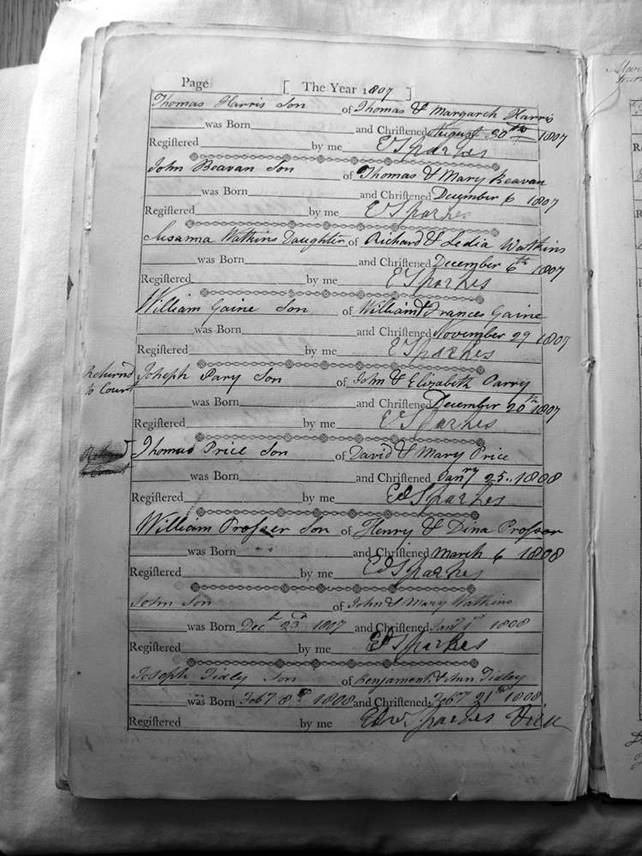 Page [ The Year 1807 ]
Thomas Harris Son of Thomas & Margaret Harris
was Born and Christened August 20th 1807
Registered by me E Sparkes
John Beavan Son of Thomas & Mary Beavan
was Born and Christened December 6 1807
Registered by me E Sparkes
Susanna Watkins Daughter of Richard & Ledia Watkins
was Born and Christened December 6th 1807
Registered by me E Sparkes
William Gaine Son of William & Frances Gaine
was Born and Christened November 29 1807
Registered by me E Sparkes
Returnd
to Court
Joseph Pary Son of John & Elizabeth Parry
was Born and Christened December 20th 1807
Registered by me E Sparkes
Thomas Price Son of David & Mary Price
was Born and Christened Janry 25.. 1808
Registered by me Ed Sparkes
William Prosser Son of Henry & Dina Prosser
was Born and Christened March 6 1808
Registered by me Ed Sparkes
John Son of John & Mary Watkins
was Born Dect 23d 1807 and Christened 1st 1808
Registered by me Ed Sparkes
Joseph Son of Benjamen & Ann
was Born 8th 1808 and Christened 21st 1808
Registered by me Edw Sparkes